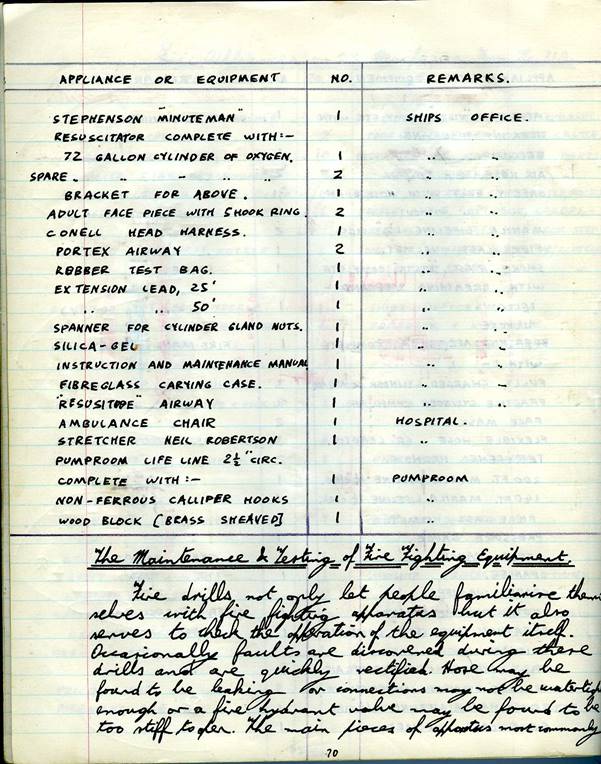 APPLIANCE OR EQUIPMENT NO. REMARKS.
STEPHENSON "MINUTEMAN" 1 SHIPS OFFICE.
RESUSCITATOR COMPLETE WITH:-
72 GALLON CYLINDER OF OXYGEN. 1 " "
SPARE. " - " " 2 " "
BRACKET FOR ABOVE. 1 " "
ADULT FACE PIECE WITH 5 HOOK RING. 2 " "
CONELL HEAD HARNESS. 1 " "
PORTEX AIRWAY 2 " "
RBBBER TEST BAG. 1 " "
EXTENSION LEAD, 25' 1 " "
" " 50' 1 " "
SPANNER FOR CYLINDER GLAND NUTS. 1 " "
SILICA-GEL 1 " "
INSTRUCTION AND MAINTENANCE MANUAL 1 " "
FIBREGLASS CARYING CASE. 1 " "
"RESUSITUBE" AIRWAY 1 " "
AMBULANCE CHAIR 1 HOSPITAL.
STRETCHER NEIL ROBERTSON 1 "
PUMPROOM LIFE LINE 2½" CIRC.
COMPLETE WITH:- 1 PUMPROOM
NON-FERROUS CALLIPER HOOKS 1 "
WOOD BLOCK [BRASS SHEAVED] 1 "
The Maintenance & Testing of Fire Fighting Equipment.
Fire drills, not only let people familiarize them
selves with fire fighting apparatus but it also
serves to check the operation of the equipment itself.
Occasionally faults are discovered during these
drills and are quickly rectified. Hose may be
found to be leaking or connections may not be watertight
enough or a fire hydrant valve may be found to be
too stiff to open. The main pieces of apparatus most commonly
70